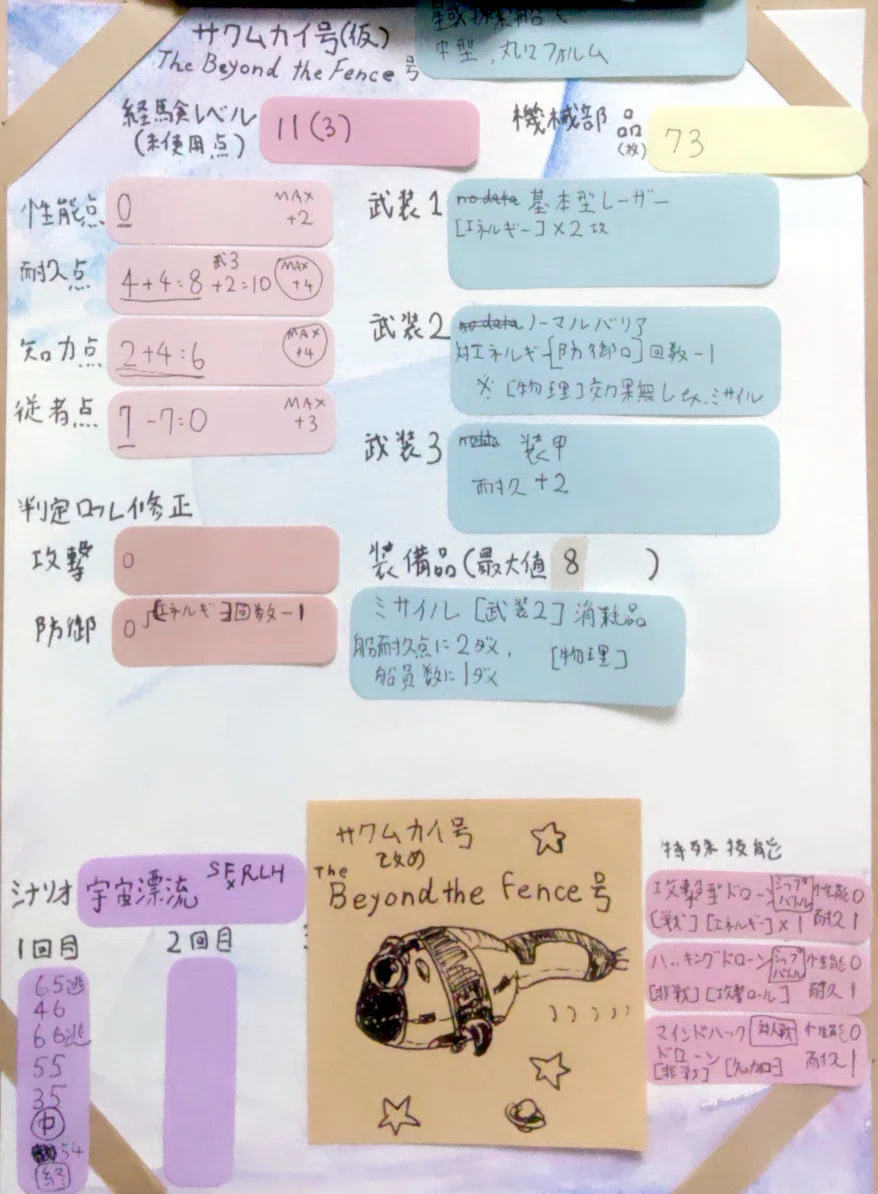 サクムカイ号(仮)
The Beyond the Fence 号
中型,丸いフォルム
経験レベル
(未使用点)
11(3)
機械部品
(枚)
73
性能点
0
MAX
+2
耐久点
4+4=8
武3
+2=10
MAX
+4
知力点
2+4=6
MAX
+4
従者点
7-7=0
MAX
+3
武装1
no data 基本型レーザー
[エネルギー]×2攻
武装2
no data ノーマルバリア
対エネルギー[防御ロ]回数-1
※[物理]効果無し ex.ミサイル
武装3
装甲
耐久+2
判定ロール修正
攻撃
0
防御
0
[エネルギー]回数-1
装備品(最大値 8 )
ミサイル[武装2]消耗品
船耐久点に2ダメ,
[物理]
船員数に1ダメ
シナリオ
宇宙漂流
SF×RLH
1回目
2回目
65逃
46
66逃
55
35
中
54
終
サクムカイ号
改め
The
Beyond the Fence 号
特殊技能
攻撃型ドローン
シップバトル
性能0
[戦][エネルギー]×1
耐久1
ハッキングドローン
シップバトル
性能0
[非戦][攻撃ロール]
耐久1
マインドハック
対人戦
性能0
ドローン
[非戦]
[知力ロ]
耐久1